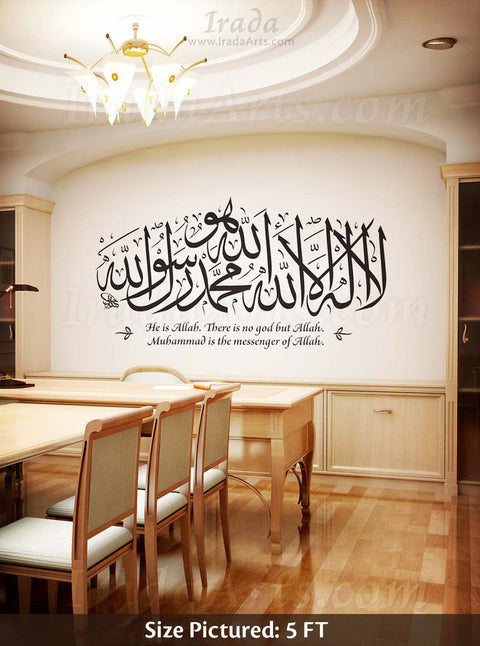 Irada
www.IradaArts.com
IradaArts.com
لا اله الا الله هو الله محمد رسول الله
IradaArts.com
He is Allah. There is no god but Allah.
Muhammad is the messenger of Allah.
IradaArts.com
Size Pictured: 5 FT